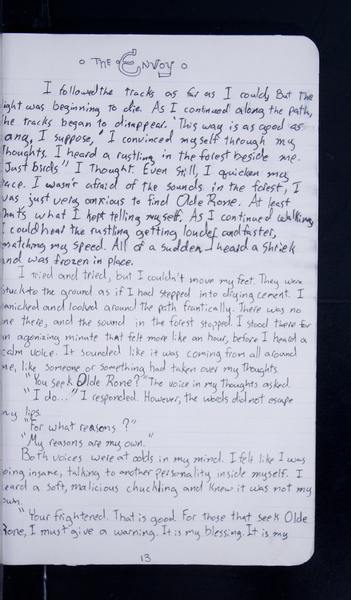 THE ENVOY
I followed the tracks as far as I could, But the
ight was beginning to die. As I continued along the path,
he tracks began to dissapear. 'This way is as good as
any, I suppose,' I convinced myself through my
thoughts. I heard a rustling in the forest beside me.
"Just birds" I thought. Even still, I quicken my
pace. I wasn't afraid of the sounds in the forest, I
was just very anxious to find Olde Rone. At least
thats what I kept telling myself. As I continued walking,
I could hear the rustling getting louder and faster,
matching my speed. All of a sudden I heard a shriek
and was frozen in place.
I tried and tried, but I couldn't move my feet. They were
stuck to the ground as if I had stepped into drying cement. I
panicked and looked around the path frantically. There was no
one there, and the sound in the forest stopped. I stood there for
an agonizing minute that felt more like an hour, before I heard a
calm voice. It sounded like it was coming from all around
me, like someone or something had taken over my thoughts.
"You seek Olde Rone?" The voice in my thoughts asked.
"I do..." I responded. However, the words did not escape
my lips.
"For what reasons?"
"My reasons are my own."
Both voices were at odds in my mind. I felt like I was
going insane, talking to another personality inside myself. I
heard a soft, malicious chuckling and knew it was not my
own.
"Your frightened. That is good. For those that seek Olde
Rone, I must give a warning. It is my blessing. It is my
13